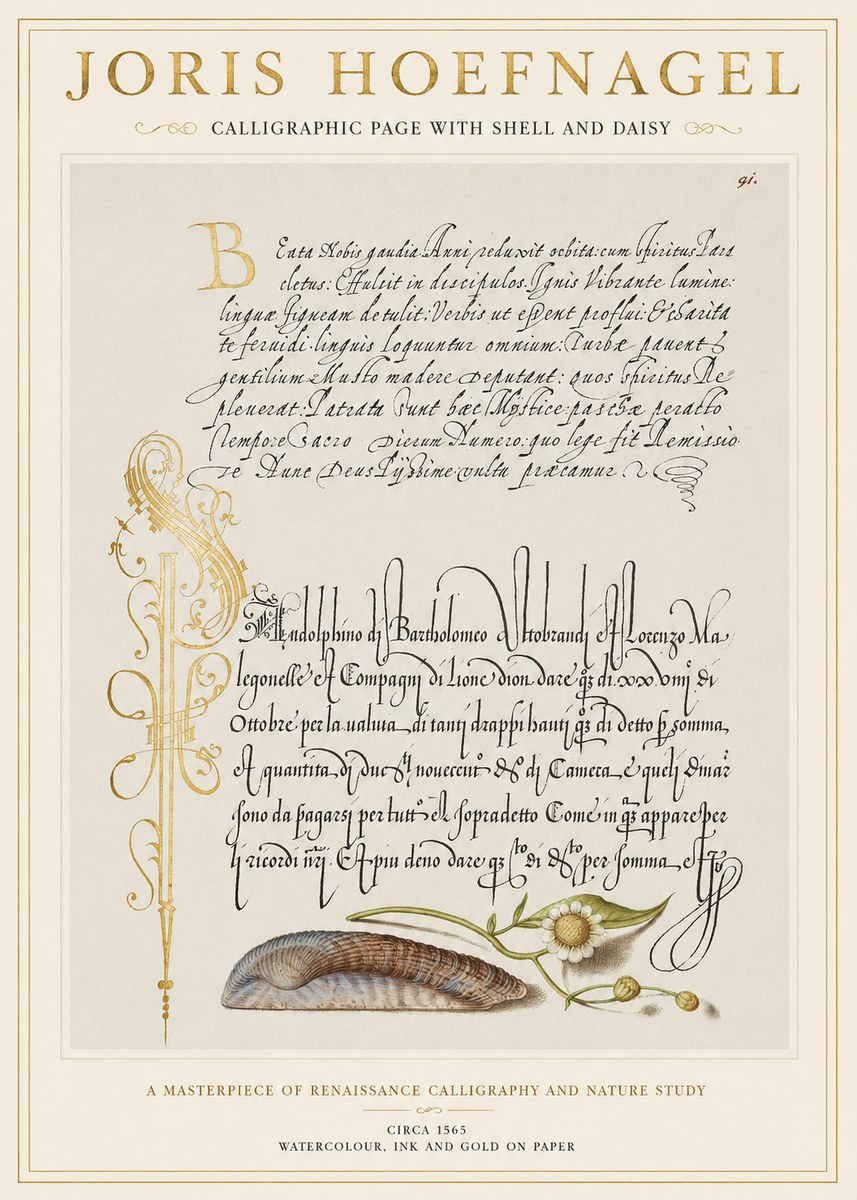 JORIS HOEFNAGEL
CALLIGRAPHIC PAGE WITH SHELL AND DAISY
91.
BEata Nobis gaudia Anni reduxit orbita: cum spiritus Para
cletus: Effulsit in discipulos. Ignis Vibrante lumine:
linguæ figueam detulit: Verbis ut essent proflui: & charita
te feruidi. linguis loquuntur omnium: Turbæ pauent
gentilium Musto madere Deputant: quos spiritus Re
pleuerat: Patrata Sunt hæc Mÿstice: paschæ peracto
Tempore Sacro Dierum Numero: quo lege fit Remissio
Nunc Deus Pijssime vultu præcamur
Rudolphino di Bartholomeo Altobrandi et Lorenzo Ma
legonelle et Compagni di Lione dion dare qs di. xxvmj di
Ottobre per la ualuta di tanti drappi hauti qs di detto p somma
et quantita di ducti nouecento d'or di Camera e queli dinar
sono da pagarsi per tutto el sopradetto Come in qs appare per
li ricordi nri. Et piu deno dare qs di per somma et
A MASTERPIECE OF RENAISSANCE CALLIGRAPHY AND NATURE STUDY
CIRCA 1565
WATERCOLOUR, INK AND GOLD ON PAPER